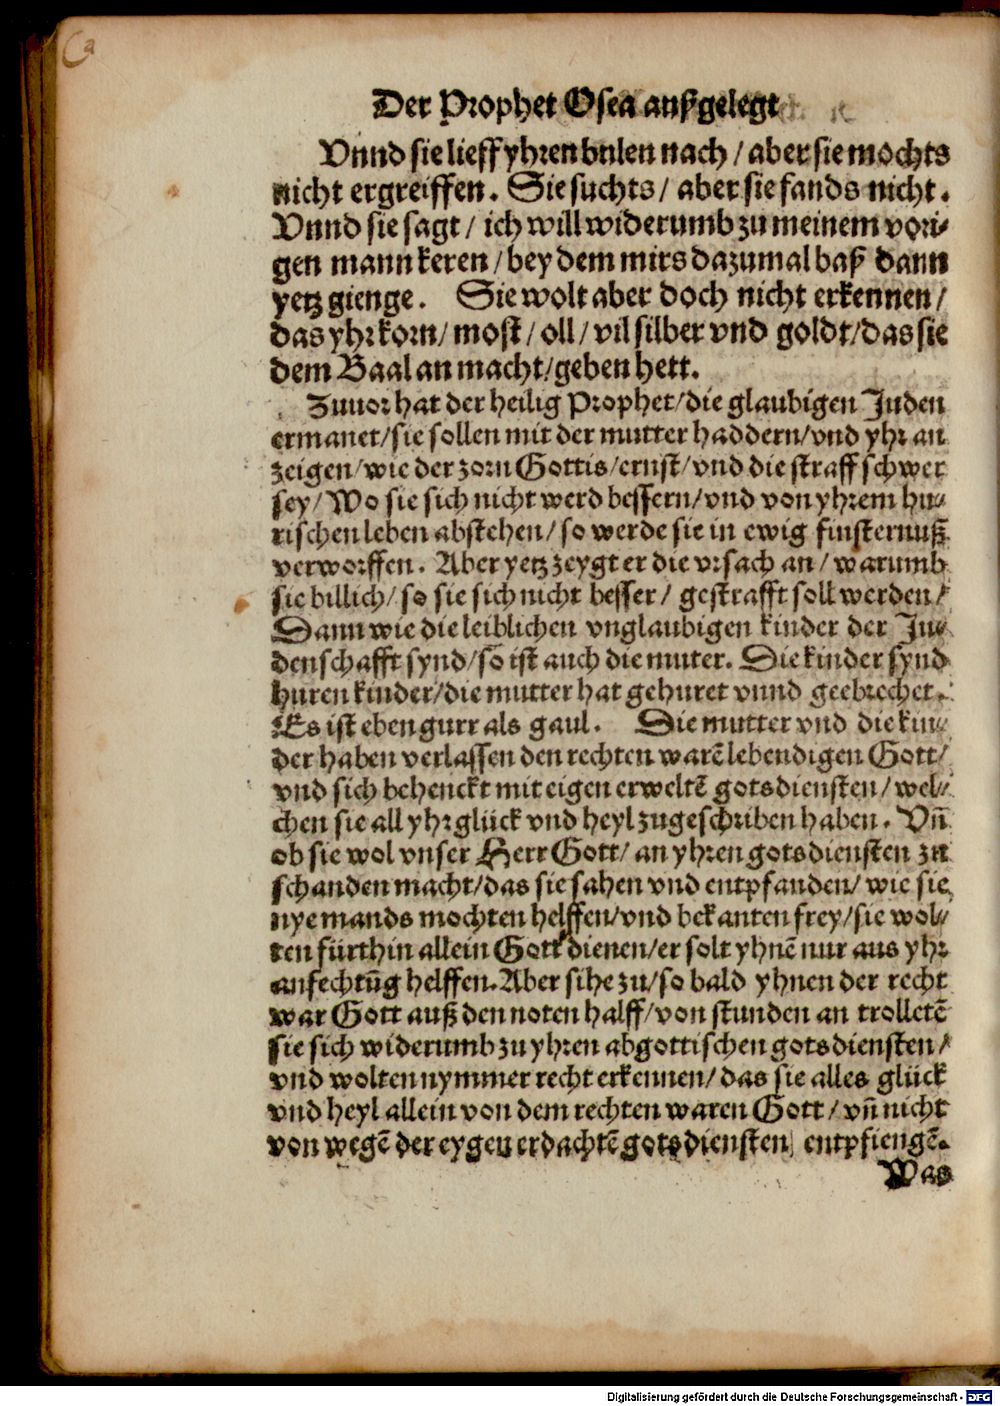 Ca
Der Prophet Osea außgelegt
Vnnd sie lieff yhren bulen nach / aber sie mochts
nicht ergreiffen. Sie suchts / aber sie fands nicht.
Vnnd sie sagt / ich will widerumb zu meinem vori-
gen mann keren / bey dem mirs dazumal baß dann
yetz gienge. Sie wolt aber doch nicht erkennen /
das yhr korn / most / oll / vil silber vnd goldt / das sie
dem Baal an macht / geben hett.
Zuuor hat der heilig Prophet / die glaubigen Juden
ermanet / sie sollen mit der mutter haddern / vnd yhr an
zeigen / wie der zorn Gottis / ernst / vnd die straff schwer
sey / Wo sie sich nicht werd bessern / vnd von yhrem hu-
rischen leben abstehen / so werde sie in ewig finsternuß
verworffen. Aber yetz zeygt er die vrsach an / warumb
sie billich / so sie sich nicht besser / gestrafft soll werden /
Dann wie die leiblichen vnglaubigen kinder der Ju-
denschafft synd / so ist auch die muter. Die kinder synd
huren kinder / die mutter hat gehuret vnnd geebrechet.
Es ist eben gurr als gaul. Die mutter vnd die kin-
der haben verlassen den rechten warē lebendigen Gott /
vnd sich behenckt mit eigen erweltē gotsdiensten / wel-
chen sie all yhr glück vnd heyl zugeschriben haben. Vñ
ob sie wol vnser Herr Gott / an yhren gotsdiensten zu
schanden macht / das sie sahen vnd entpfanden / wie sie
nyemands mochten helffen / vnd bekanten frey / sie wol-
ten fürthin allein Gott dienen / er solt yhnē nur aus yhr
anfechtũg helffen. Aber sihe zu / so bald yhnen der recht
war Gott auß den noten halff / von stunden an trolletē
sie sich widerumb zu yhren abgottischen gotsdiensten /
vnd wolten nymmer recht erkennen / das sie alles glück
vnd heyl allein von dem rechten waren Gott / vñ nicht
von wegē der eygen erdachtē gotsdiensten entpfiengē.
Was
Digitalisierung gefördert durch die Deutsche Forschungsgemeinschaft - DFG